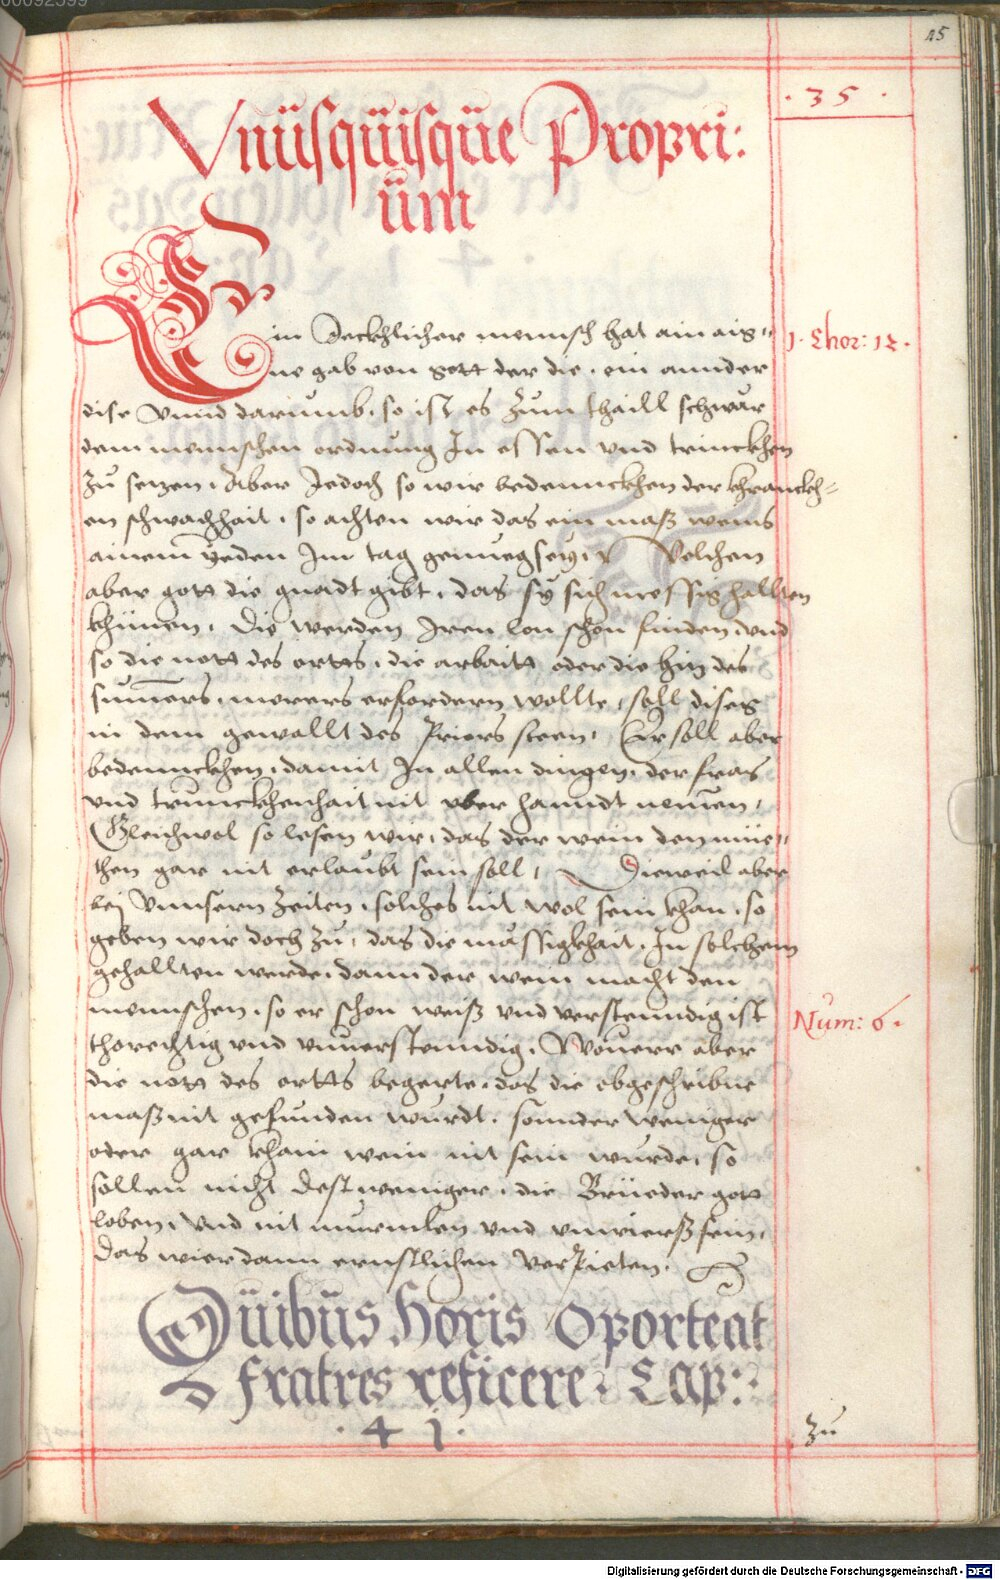 00092599
45
. 35 .
Vnüsqüisqüe Propri:
üm
Ein Jeckhlicher mennsch hat ain aig=
ne gab von gott der die . ein annder
dise Vnnd darumb . so ist es zum thaill schwär
dem mennschen ordnung In essen vnd trinckhen
zu setzen . Aber Jedoch so wir bedennckhen der khranckh=
en schwachhait . so achten wir das ein maß weins
ainem yeden Im tag genueg sey . Welchen
aber gott die gnadt gibt . das sy sich messig hallten
khünen . Die werden Iren lon schon finden . vnd
so die nott des ortts . die arbaitt oder die hitz des
sum̄ers . merers erfordern wollte . soll dises
in dem gewallt des Priors steen . Er soll aber
bedennckhen . damit In allen dingen . der fras
vnd trunckhenhait nit vber hanndt nemen .
Gleichwol so lesen wir . das der wein den mü=
chen gar nit erlaubt sein soll . Dieweil aber
bej Vnnsern Zeiten . solches nit wol sein khan . so
geben wir doch zu . das die mässigkhait . In solchem
gehallten werde . dann der wein macht den
mennschen . so er schon weiß vnd verstenndig ist
thorechtig vnd vnuerstenndig . Wouerr aber
die nott des ortts begerte . das die obgeschribne
maß nit gefunden wurdt . sonnder weniger
oder gar khain wein nit sein wurde . so
sollen nicht dest weniger . die Brüeder gott
loben . vnd nit murmlen vnd vnwierß sein .
das wier dann ernstlichen verpieten .
Qüibüs horis oporteat
fratres reficere . Cap:
. 4 1 .
1 . Chor: 12 .
Num: 6 .
zu
Digitalisierung gefördert durch die Deutsche Forschungsgemeinschaft - DFG